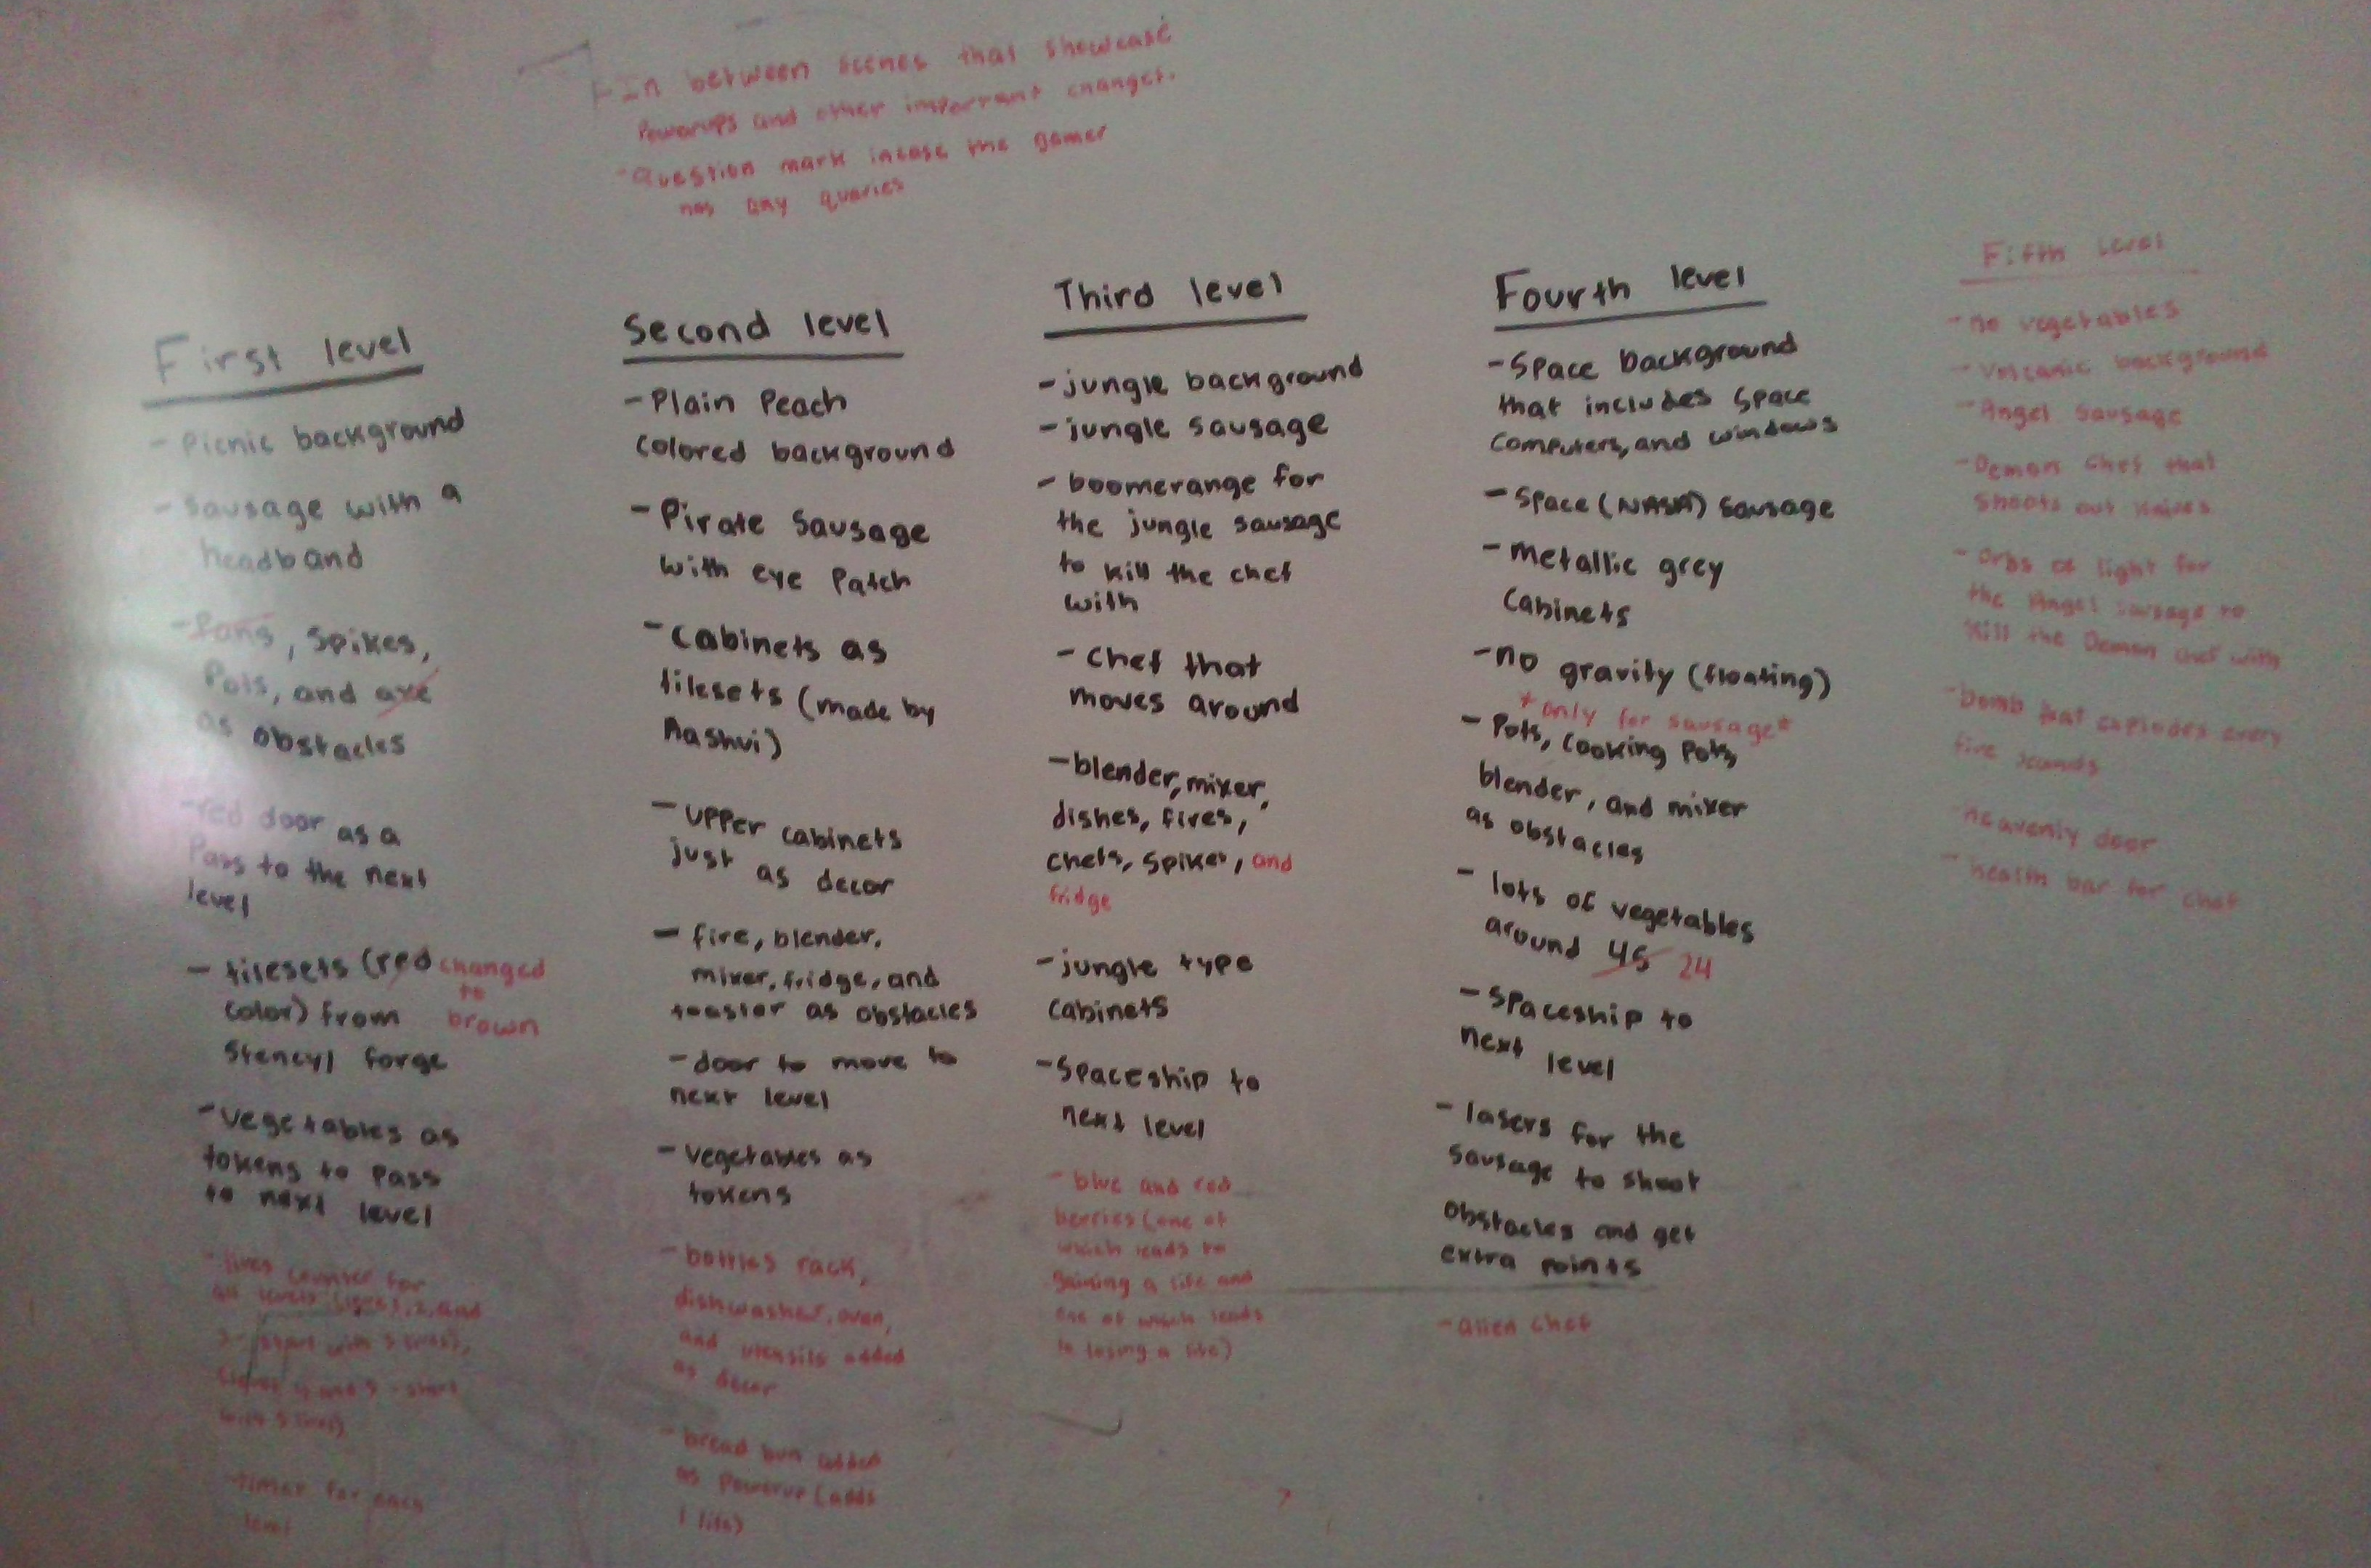 -In between scenes that showcase
Powerups and other important changes.
-Question mark incase the gamer
has any quaries
First level
- Picnic background
- Sausage with a
headband
-Pans, Spikes,
Pots, and axe
as obstacles
-red door as a
Pass to the next
level
- tilesets (red changed
to
color) from brown
Stencyl forge
-Vegetables as
tokens to pass
to next level
-lives counter for
all levels 1, 2, and
3 - start with 5 lives),
4 and 5 - start
with 5 lives)
-timer for each
level
Second level
-Plain Peach
colored background
-Pirate Sausage
with eye Patch
-Cabinets as
tilesets (made by
Aashvi)
-upper cabinets
just as decor
- fire, blender,
mixer, fridge, and
toaster as obstacles
-door to move to
next level
-vegetables as
tokens
-bottles rack,
dishwasher, oven,
and utensils added
as decor
-bread bun added
as Powerup (adds
1 life)
Third level
-jungle background
-jungle sausage
- boomerange for
the jungle sausage
to kill the chef
with
-chef that
moves around
-blender, mixer,
dishes, fires,
chefs, spikes, and
fridge
-jungle type
cabinets
-Spaceship to
next level
-blue and red
berries (one of
which leads to
gaining a life and
one of which leads
to losing a life)
Fourth level
-Space background
that includes space
computers, and windows
-Space (NASA) Sausage
-metallic grey
Cabinets
-no gravity (floating)
*only for sausage*
- Pots, cooking pots,
blender, and mixer
as obstacles
- lots of vegetables
around 45 24
-Spaceship to
next level
- lasers for the
sausage to shoot
obstacles and get
extra points
-alien chef
Fifth level
-no vegetables
-Volcanic background
-Angel Sausage
-Demon chef that
shoots out knives
-orbs of light for
the Angel sausage to
kill the Demon chef with
-bomb that explodes every
five seconds
-heavenly door
-health bar for chef